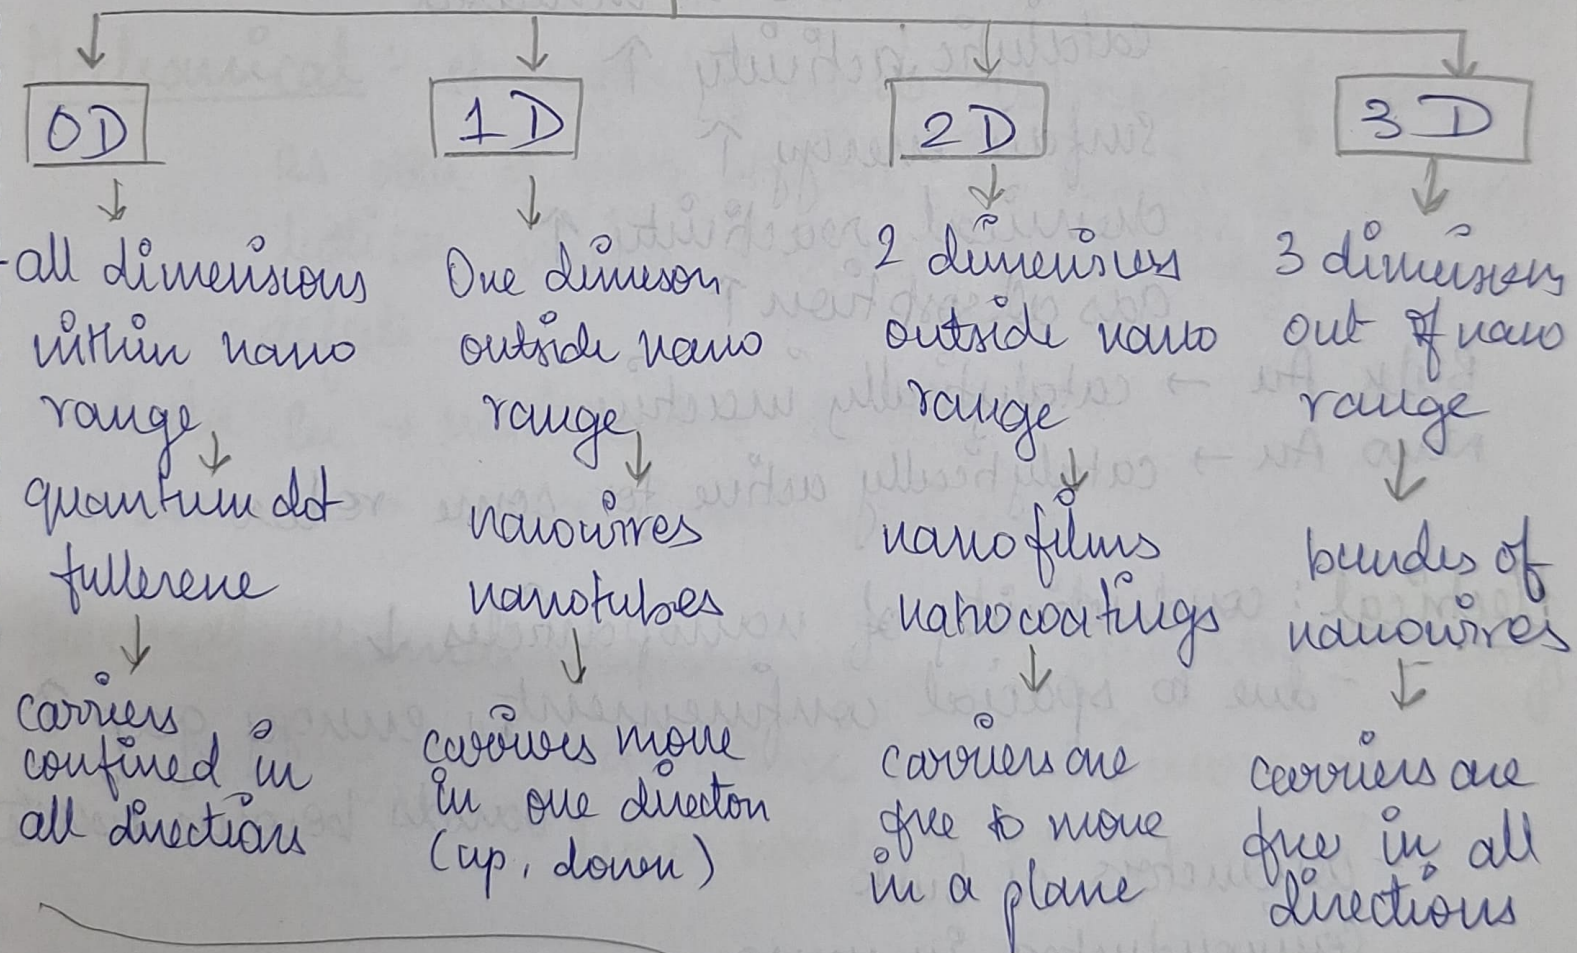 0D
all dimensions
within nano
range
quantum dot
fullerene
carriers
confined in
all directions
1D
One dimeson
outside nano
range
nanowires
nanotubes
carriers move
in one directon
(up, down)
2D
2 dimensions
outside nano
range
nanofilms
nanocoatings
carriers are
free to move
in a plane
3D
3 dimensions
out of nano
range
bundes of
nanowires
carriers are
free in all
directions